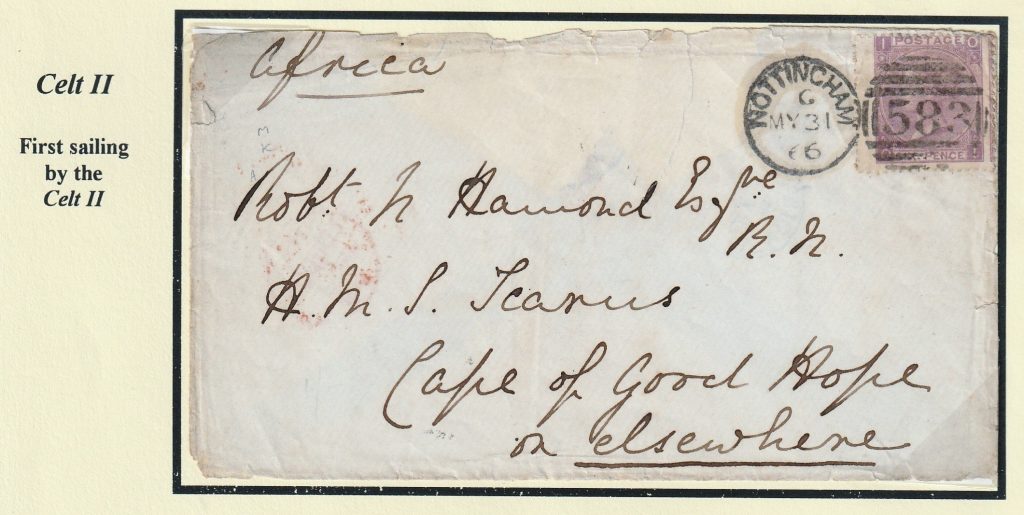 Celt II
First sailing
by the
Celt II
Africa
NOTTINGHAM
G
MY 31
66
I POSTAGE O
583
PENCE
M
K
Robt N Hamond Esqre
R.N.
H.M.S. Icarus
Cape of Good Hope
or elsewhere